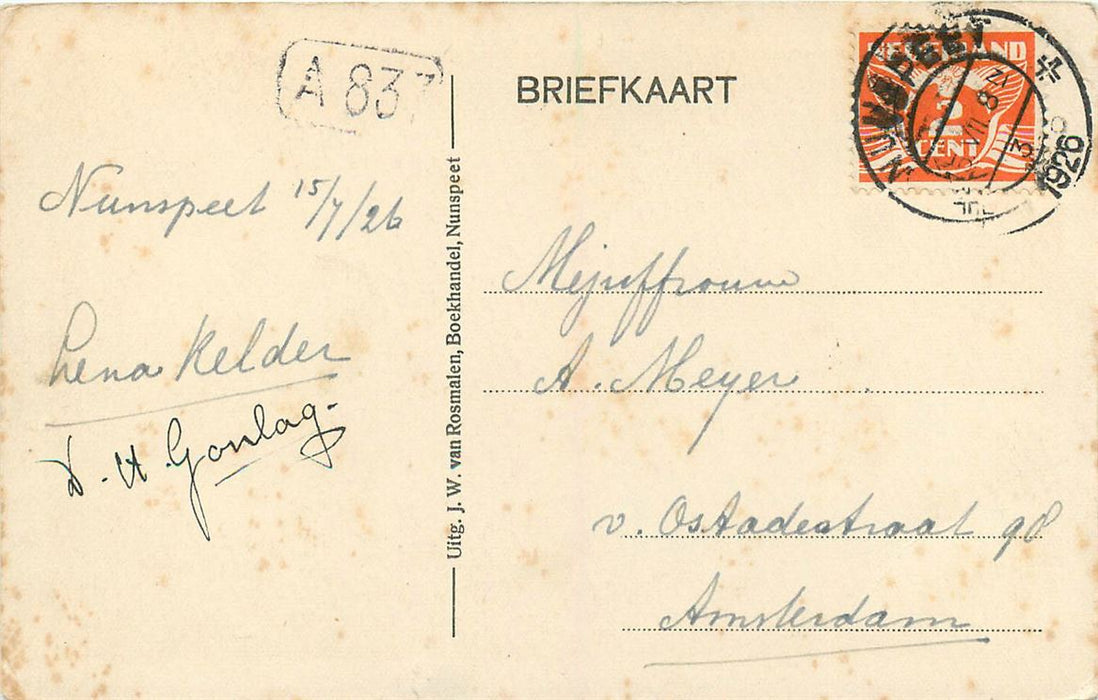 A 837
BRIEFKAART
NEDERLAND
2
CENT
NUNSPEET
1926
Nunspeet 15/7/26
Lena Kelder
D. H. Gonlag.
Uitg. J. W. van Rosmalen, Boekhandel, Nunspeet
Mejuffrouw
A. Meyer
v. Ostadestraat 98
Amsterdam